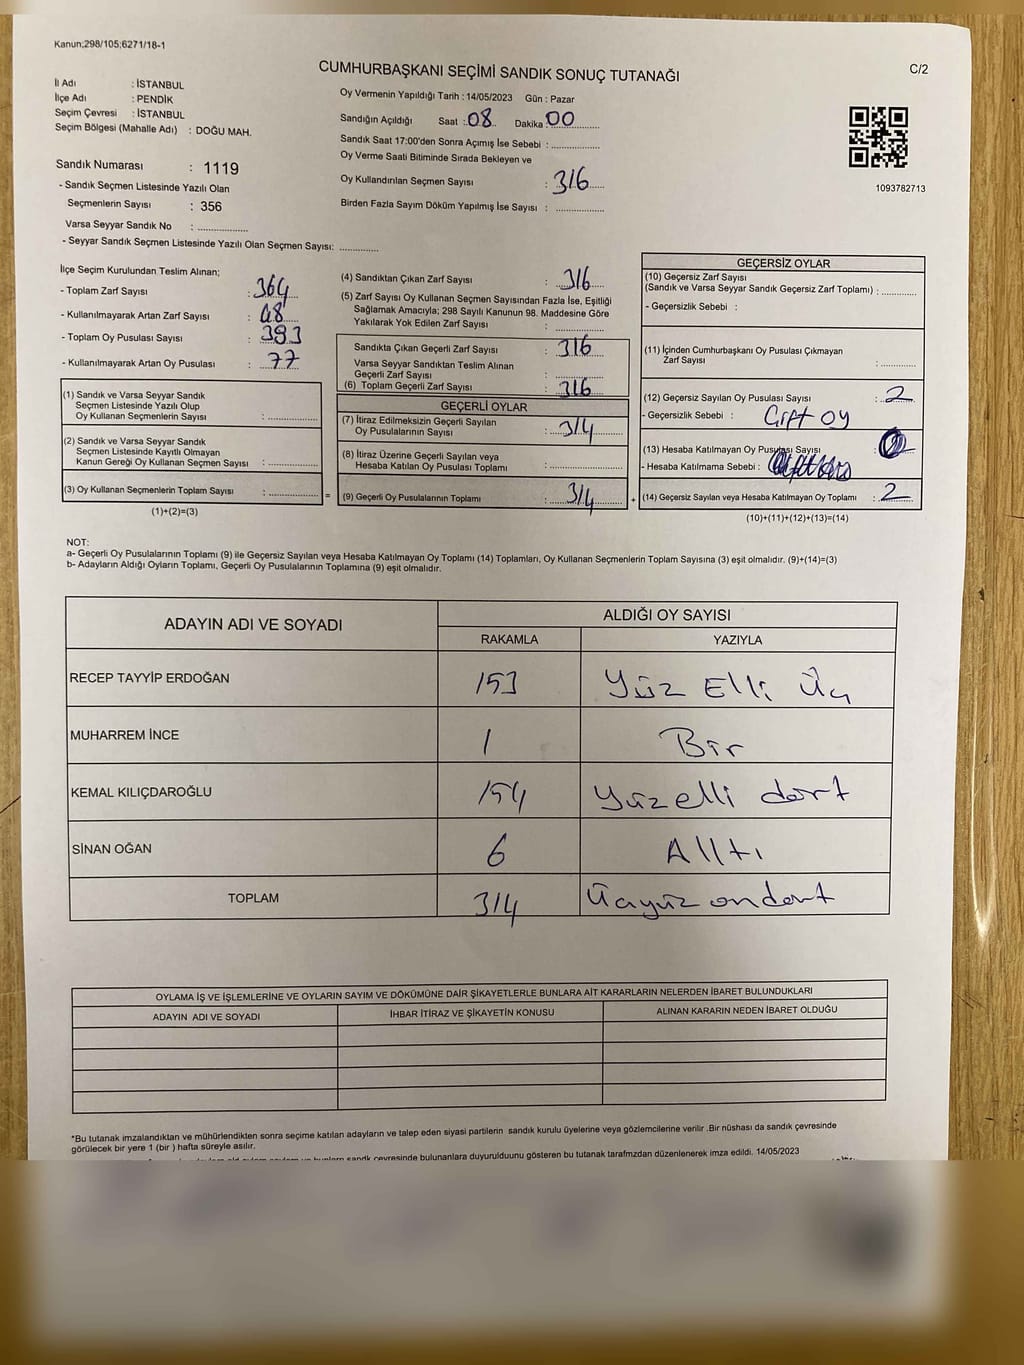 Kanun;298/105;6271/18-1
C/2
CUMHURBAŞKANI SEÇİMİ SANDIK SONUÇ TUTANAĞI
İl Adı : İSTANBUL
İlçe Adı : PENDİK
Seçim Çevresi : İSTANBUL
Seçim Bölgesi (Mahalle Adı) : DOĞU MAH.
Sandık Numarası : 1119
- Sandık Seçmen Listesinde Yazılı Olan
Seçmenlerin Sayısı : 356
Varsa Seyyar Sandık No : ..................
- Seyyar Sandık Seçmen Listesinde Yazılı Olan Seçmen Sayısı: ..............
Oy Vermenin Yapıldığı Tarih : 14/05/2023 Gün : Pazar
Sandığın Açıldığı Saat : 08 Dakika 00
Sandık Saat 17:00'den Sonra Açımış İse Sebebi : ................
Oy Verme Saati Bitiminde Sırada Bekleyen ve
Oy Kullandırılan Seçmen Sayısı : 316
Birden Fazla Sayım Döküm Yapılmış İse Sayısı : ................
1093782713
İlçe Seçim Kurulundan Teslim Alınan;
- Toplam Zarf Sayısı : 364
- Kullanılmayarak Artan Zarf Sayısı : 48
- Toplam Oy Pusulası Sayısı : 393
- Kullanılmayarak Artan Oy Pusulası : 77
(1) Sandık ve Varsa Seyyar Sandık
Seçmen Listesinde Yazılı Olup
Oy Kullanan Seçmenlerin Sayısı : ................
(2) Sandık ve Varsa Seyyar Sandık
Seçmen Listesinde Kayıtlı Olmayan
Kanun Gereği Oy Kullanan Seçmen Sayısı : ................
(3) Oy Kullanan Seçmenlerin Toplam Sayısı : ................ =
(1)+(2)=(3)
(4) Sandıktan Çıkan Zarf Sayısı : 316
(5) Zarf Sayısı Oy Kullanan Seçmen Sayısından Fazla İse, Eşitliği
Sağlamak Amacıyla; 298 Sayılı Kanunun 98. Maddesine Göre
Yakılarak Yok Edilen Zarf Sayısı : ................
Sandıkta Çıkan Geçerli Zarf Sayısı : 316
Varsa Seyyar Sandıktan Teslim Alınan
Geçerli Zarf Sayısı : ................
(6) Toplam Geçerli Zarf Sayısı : 316
GEÇERLİ OYLAR
(7) İtiraz Edilmeksizin Geçerli Sayılan
Oy Pusulalarının Sayısı : 314
(8) İtiraz Üzerine Geçerli Sayılan veya
Hesaba Katılan Oy Pusulası Toplamı : ................
(9) Geçerli Oy Pusulalarının Toplamı : 314 +
GEÇERSİZ OYLAR
(10) Geçersiz Zarf Sayısı
(Sandık ve Varsa Seyyar Sandık Geçersiz Zarf Toplamı) : ............
- Geçersizlik Sebebi :
(11) İçinden Cumhurbaşkanı Oy Pusulası Çıkmayan
Zarf Sayısı : ............
(12) Geçersiz Sayılan Oy Pusulası Sayısı : 2
- Geçersizlik Sebebi : Çift oy
(13) Hesaba Katılmayan Oy Pusulası Sayısı :
- Hesaba Katılmama Sebebi :
(14) Geçersiz Sayılan veya Hesaba Katılmayan Oy Toplamı : 2
(10)+(11)+(12)+(13)=(14)
NOT:
a- Geçerli Oy Pusulalarının Toplamı (9) ile Geçersiz Sayılan veya Hesaba Katılmayan Oy Toplamı (14) Toplamları, Oy Kullanan Seçmenlerin Toplam Sayısına (3) eşit olmalıdır. (9)+(14)=(3)
b- Adayların Aldığı Oyların Toplamı, Geçerli Oy Pusulalarının Toplamına (9) eşit olmalıdır.
ADAYIN ADI VE SOYADI ALDIĞI OY SAYISI
RAKAMLA YAZIYLA
RECEP TAYYİP ERDOĞAN 153 Yüz Elli Üç
MUHARREM İNCE 1 Bir
KEMAL KILIÇDAROĞLU 154 Yüzelli dört
SİNAN OĞAN 6 Alltı
TOPLAM 314 Üçyüz ondört
OYLAMA İŞ VE İŞLEMLERİNE VE OYLARIN SAYIM VE DÖKÜMÜNE DAİR ŞİKAYETLERLE BUNLARA AİT KARARLARIN NELERDEN İBARET BULUNDUKLARI
ADAYIN ADI VE SOYADI İHBAR İTİRAZ VE ŞİKAYETİN KONUSU ALINAN KARARIN NEDEN İBARET OLDUĞU
*Bu tutanak imzalandıktan ve mühürlendikten sonra seçime katılan adayların ve talep eden siyasi partilerin sandık kurulu üyelerine veya gözlemcilerine verilir .Bir nüshası da sandık çevresinde
görülecek bir yere 1 (bir ) hafta süreyle asılır.
sandık çevresinde bulunanlara duyurulduunu gösteren bu tutanak tarafmzdan düzenlenerek imza edildi. 14/05/2023